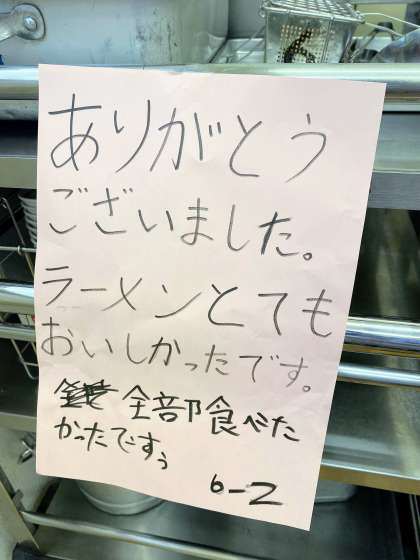 ありがとう
ございました。
ラーメンとても
おいしかったです。
全部食べた
かったですぅ
6-2